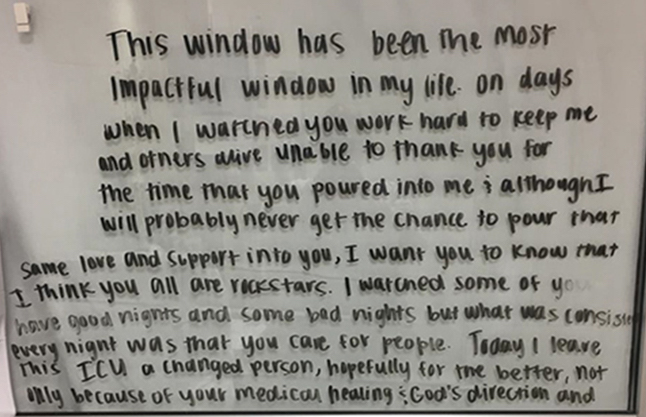 This window has been the most
impactful window in my life. on days
when I watched you work hard to keep me
and others alive unable to thank you for
the time that you poured into me & although I
will probably never get the chance to pour that
same love and support into you, I want you to know that
I think you all are rockstars. I watched some of you
have good nights and some bad nights but what was consiste
every night was that you care for people. Today I leave
This ICU a changed person, hopefully for the better, not
only because of your medical healing & God's direction and